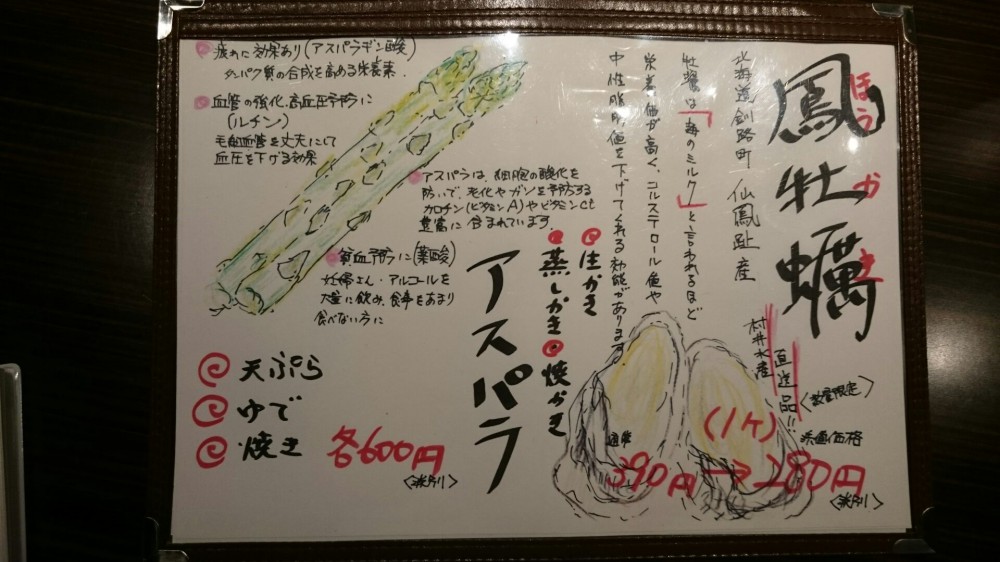 鳳牡蠣
ほうがき
北海道釧路町 仙鳳趾産
牡蠣は「海のミルク」と言われるほど
栄養価が高く、コルステロール値や
中性脂肪値を下げてくれる効能があります。
村井水産
直送品!!
〈数量限定〉
生かき
蒸しかき
焼かき
(1ヶ)
通常
390円→280円
〈税別〉
アスパラ
疲れに効果あり(アスパラギン酸)
タンパク質の合成を高める栄養素.
血管の強化、高血圧予防に
(ルチン)
毛細血管を丈夫にして
血圧を下げる効果
アスパラは、細胞の酸化を
防いで、老化やガンを予防する
カロチン(ビタミンA)やビタミンCも
豊富に含まれています.
貧血予防に(葉酸)
妊婦さん・アルコールを
大量に飲み、食事をあまり
食べない方に
天ぷら
ゆで
焼き
各600円
〈税別〉